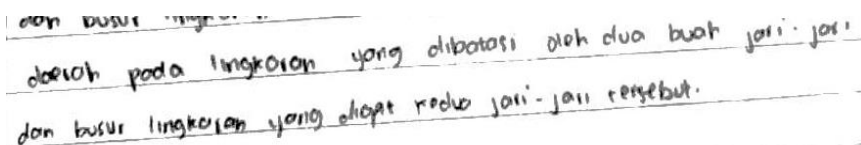 dan busur lingkar
daerah pada lingkaran yang dibatasi oleh dua buah jari-jari
dan busur lingkaran yang diapit kedua jari-jari tersebut.